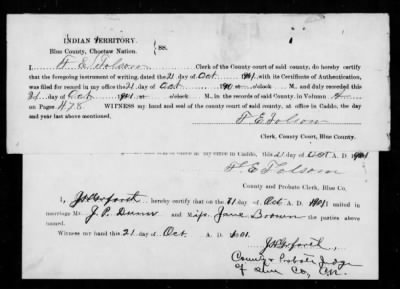 INDIAN TERRITORY.
Blue County, Choctaw Nation. } SS.
I, F. E. Folsom Clerk of the County court of said county, do hereby certify
that the foregoing instrument of writing, dated the 21 day of Oct 1901, with its Certificate of Authentication,
was filed for record in my office the 21 day of Oct 190 at o'clock M., and duly recorded this
21 day of Oct 1901 at o'clock M, in the records of said County, in Volumn
on Pages 478 WITNESS my hand and seal of the county court of said county, at office in Caddo, the day
and year last above mentioned.
F E Folsom
Clerk, County Court, Blue County.
office in Caddo, this 21 day of Oct A. D. 1901
F. E Folsom
County and Probate Clerk, Blue Co.
I, hereby certify that on the 21 day of Oct A. D. 1901 united in
marriage Mr. J. P. Dunn and Miss Jane Brown the parties above
named.
Witness my hand this 21 day of Oct. A D 1901.
County & Probate Judge
of Blue Co,